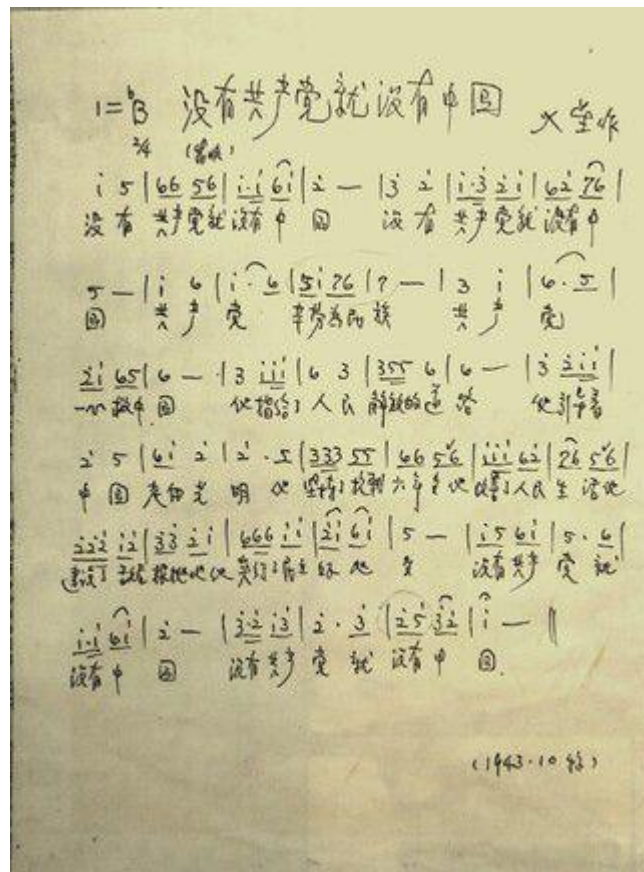 1=♭B 没有共产党就没有中国 火星作
2/4
i 5 | 66 56 | i·i 6i | 2 — | 3 2 | i·3 2i | 62 76 |
没有 共产党就没有中 国 没有 共产党就没有中
5 — | i 6 | i· 6 | 5i 76 | 7 — | 3 i | 6· 5 |
国 共产 党 辛劳为民族 共产 党
2i 65 | 6 — | 3 iii | 6 3 | 355 6 | 6 — | 3 2ii |
一心救中国 他指给了人民 解放的道路 他引导着
2 5 | 6i 2 | 2· 5 | 333 55 | 66 56 | iii 62 | 76 56 |
中国 走向光 明 他 坚持了抗战六年多他 改善了人民生活他
222 i2 | 33 2i | 666 ii | 2i 6i | 5 — | i5 6i | 5· 6 |
建设了敌后根据地他 实行了民主好 处 没有共产 党 就
i·i 6i | 2 — | 3·2 i3 | 2· 3 | 25 32 | i — ‖
没有中 国 没有共产 党 就 没有中 国.
(1943·10 )